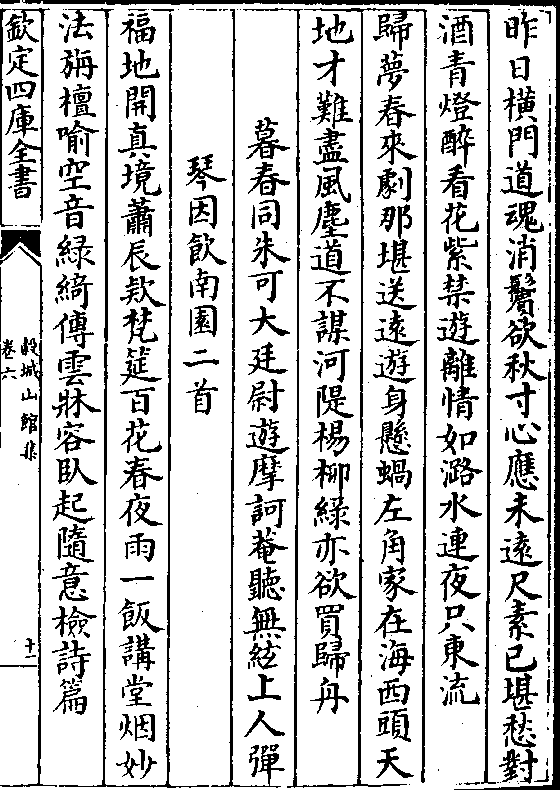 昨日橫門道魂消鬢欲秋寸心應未遠尺素已堪愁對
酒青燈醉看花紫禁遊離情如潞水連夜只東流
歸夢春來劇那堪送遠遊身懸蝸左角家在海西頭天
地才難盡風塵道不謀河隄楊柳緑亦欲買歸舟
暮春同朱可大廷尉遊摩訶菴聽無絃上人彈
琴因飲南園二首
福地開真境蕭辰欵梵筵百花春夜雨一飯講堂烟妙
法旃檀喻空音緑綺傳雲牀容臥起隨意檢詩篇
欽定四庫全書
穀城山館集
卷六
十二